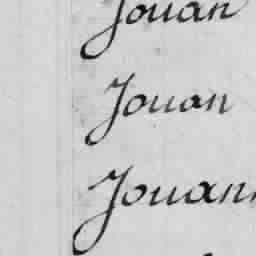 Jouan
Jouan
Jouann